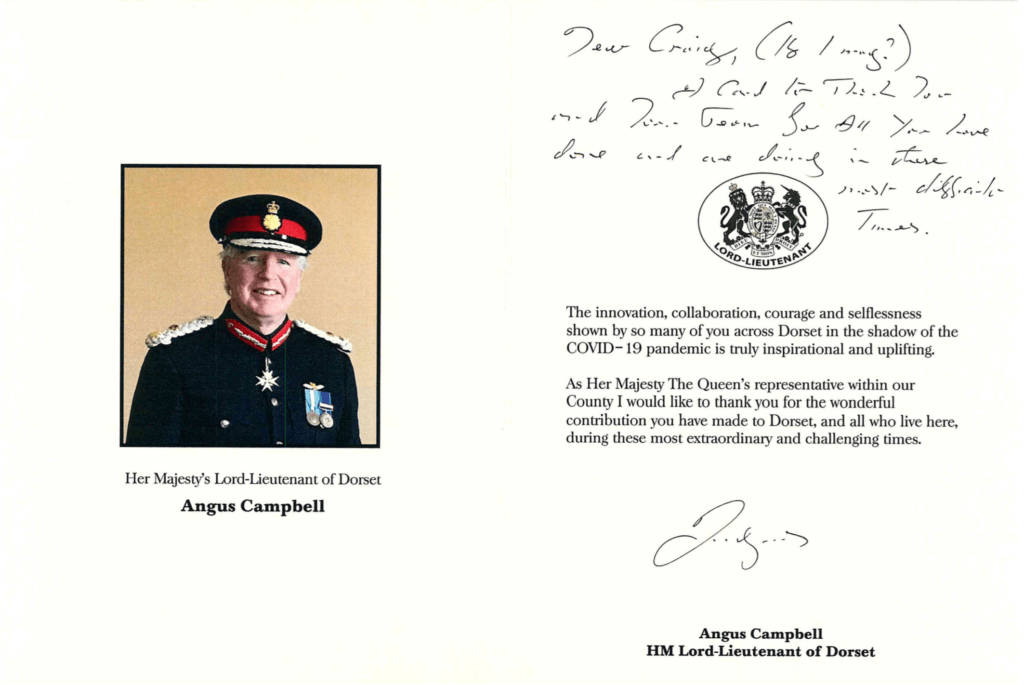 Her Majesty's Lord-Lieutenant of Dorset
Angus Campbell
Dear Craig, (If I may?)
A Card to Thank You
and Your Team for All You have
done and are doing in these
most difficult
Times.
LORD-LIEUTENANT
The innovation, collaboration, courage and selflessness
shown by so many of you across Dorset in the shadow of the
COVID-19 pandemic is truly inspirational and uplifting.
As Her Majesty The Queen's representative within our
County I would like to thank you for the wonderful
contribution you have made to Dorset, and all who live here,
during these most extraordinary and challenging times.
Angus Campbell
HM Lord-Lieutenant of Dorset